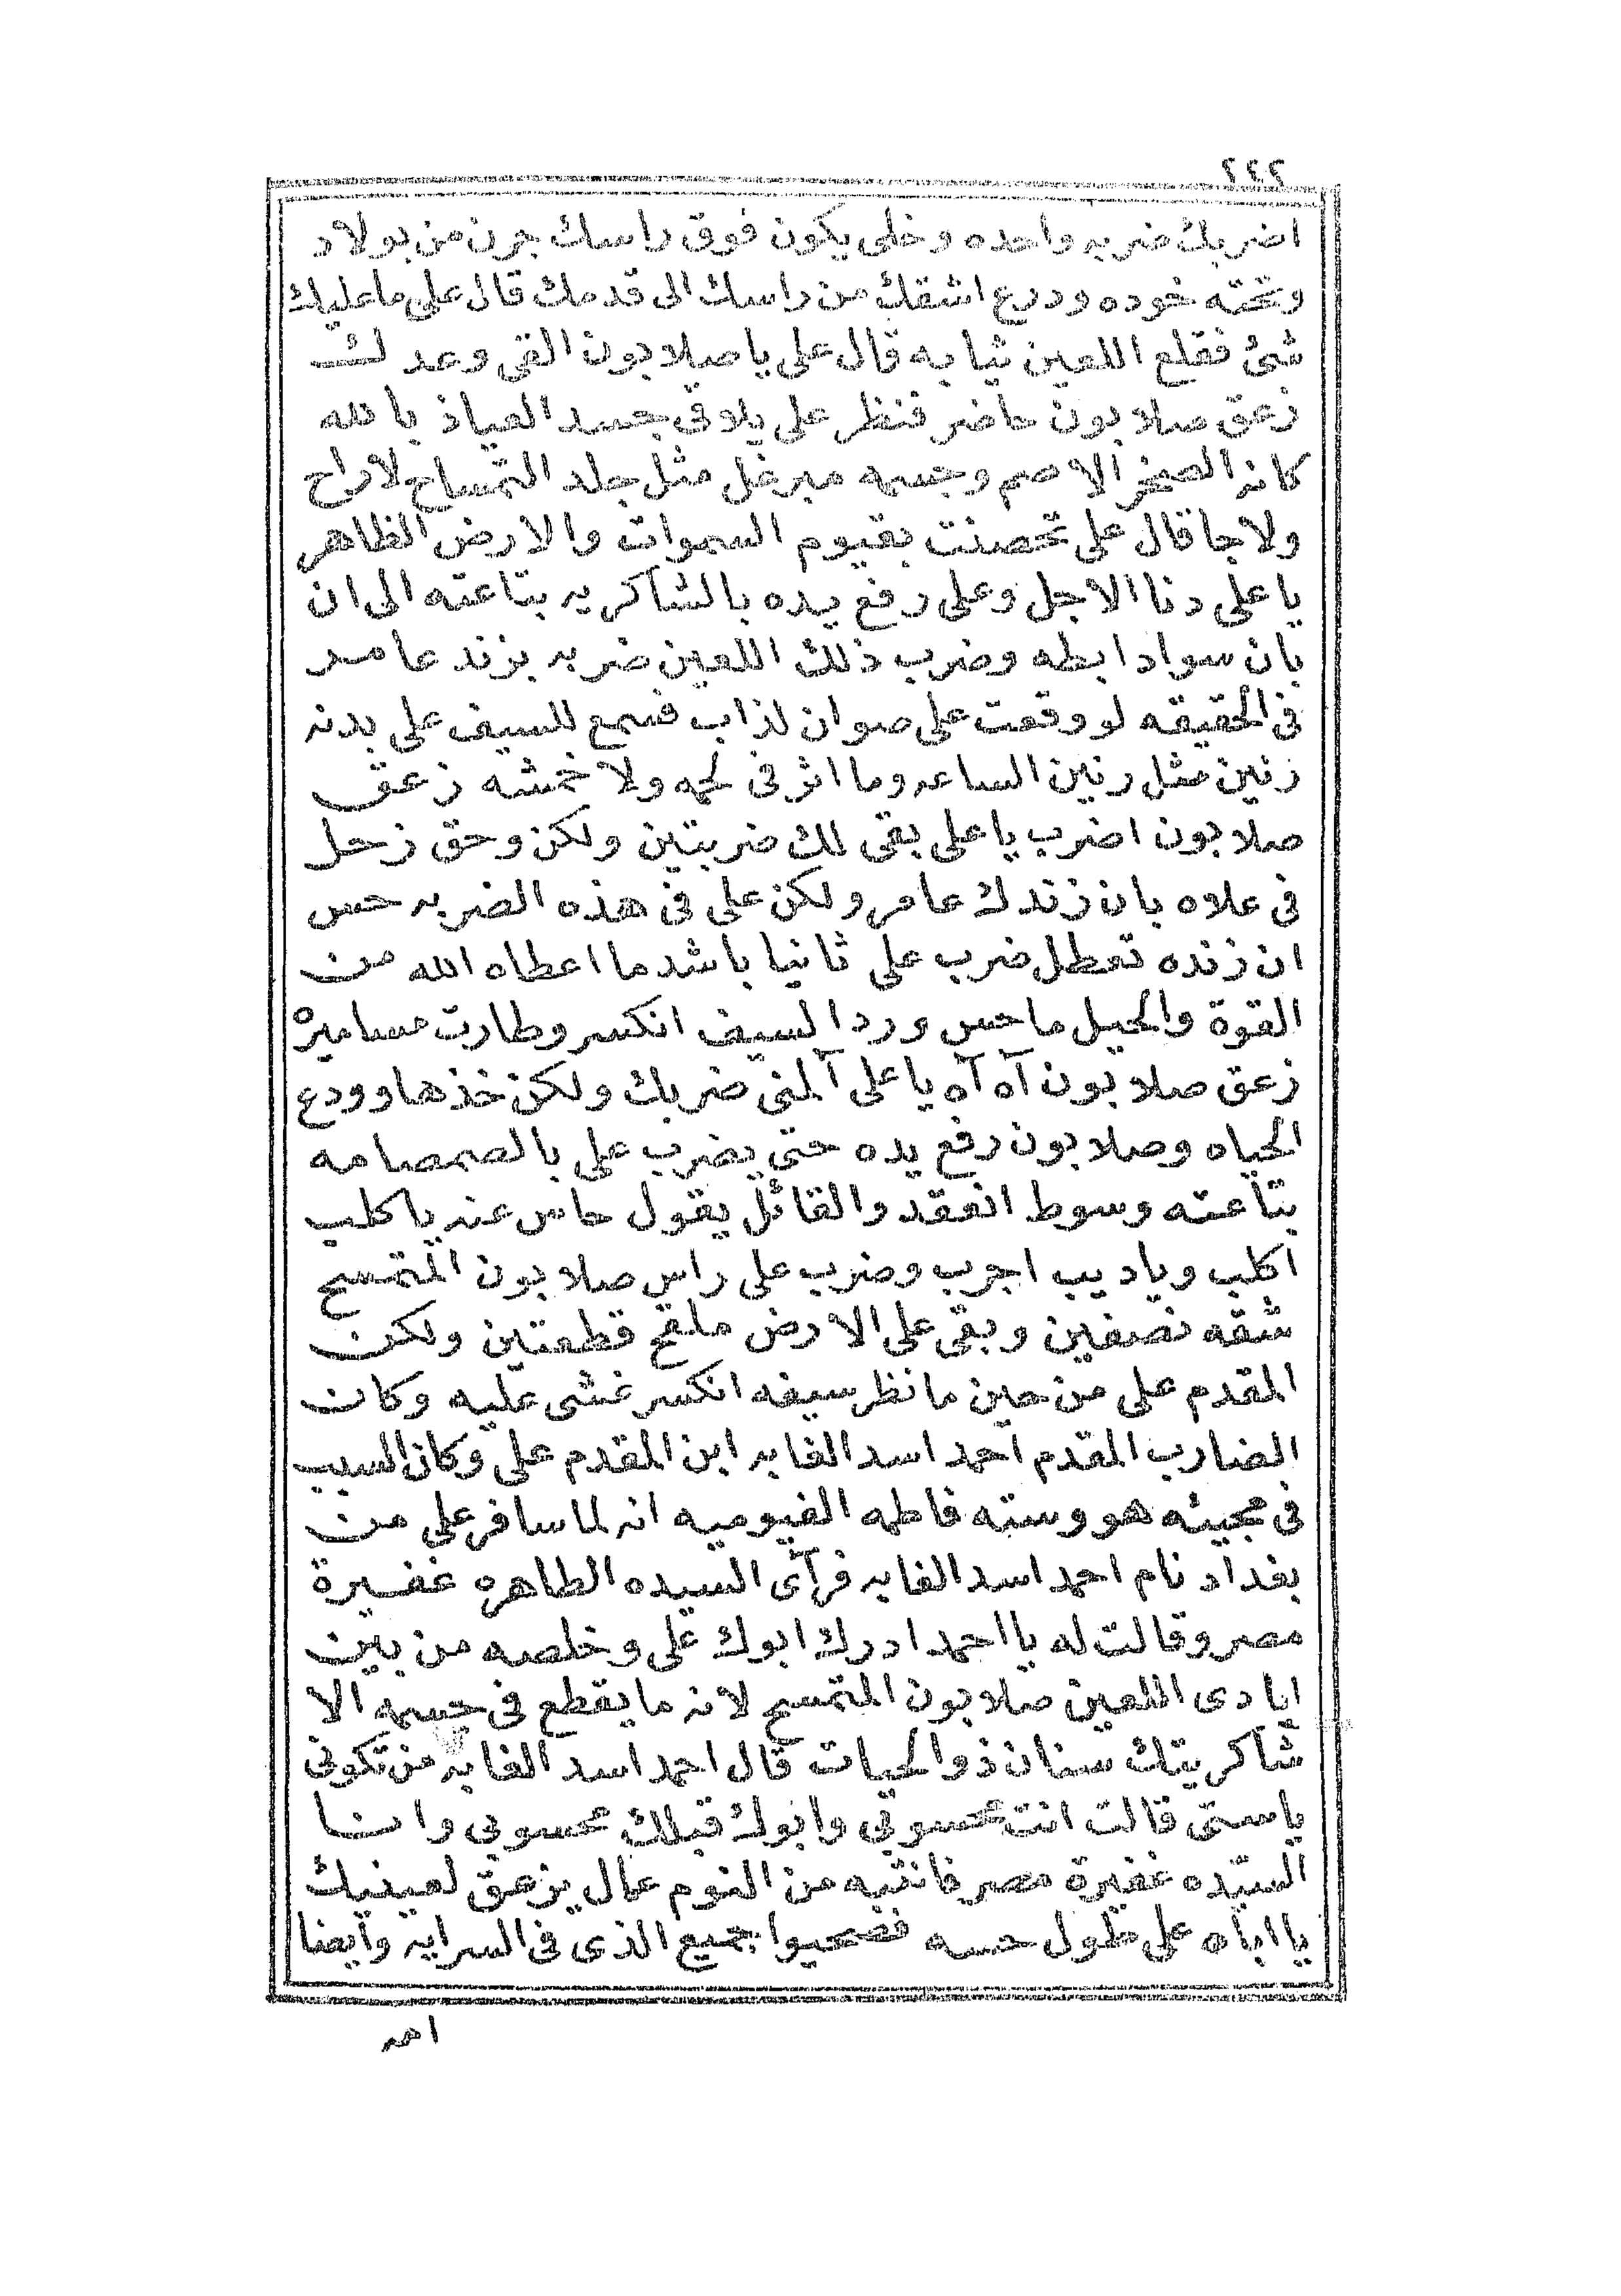 ٢٤٢
اضربك ضربه واحده وخلى يكون فوق راسك جرن من بولاد
وتحته خوده ودرع اشقك من راسك الى قدمك قال على ما عليك
شئ فقلع اللعين ثيابه قال على يا صلابون القى وعدك
زعق صلابون حاضر فنظر على يلاقى جسد العياذ بالله
كانه الصخر الاصم وجسمه مبرغل مثل جلد التمساح لا راح
ولا جا قال على تحصنت بقيوم السموات والارض الظاهر
يا على دنا الاجل وعلى رفع يده بالشاكريه بتاعته الى ان
بان سواد ابطه وضرب ذلك اللعين ضربه بزند عامر
فى الحقيقه لو وقعت على صوان لذاب فسمع للسيف على بدنه
رنين مثل رنين الساعه وما اثر فى لحمه ولا خمشه زعق
صلابون اضرب يا على بقى لك ضربتين ولكن وحق زحل
فى علاه بان زندك عامر ولكن على فى هذه الضربه حس
ان زنده تعطل ضرب على ثانيا باشد ما اعطاه الله من
القوة والحيل ما حس ورد السيف انكسر وطارت مساميره
زعق صلابون آه آه يا على آلمنى ضربك ولكن خذها وودع
الحياه وصلابون رفع يده حتى يضرب على بالصمصامه
بتاعته وسوط انعقد والقائل يقول حاس عنه يا كلب
اكلب وياديب اجرب وضرب على راس صلابون المتمسح
شقه نصفين وبقى على الارض ملقح قطعتين ولكن
المقدم على من حين ما نظر سيفه انكسر غشى عليه وكان
الضارب المقدم احمد اسد الغابه ابن المقدم على وكان السبب
فى مجيئه هو وسته فاطمه الفيوميه انه لما سافر على من
بغداد نام احمد اسد الغابه فرآى السيده الطاهره غفيرة
مصر وقالت له يا احمد ادرك ابوك على وخلصه من بين
ايادى اللعين صلابون المتمسح لانه ما يقطع فى جسمه الا
شاكريتك سنان ذو الحيات قال احمد اسد الغابه من تكونى
ياستى قالت انت محسوبى وابوك قبلك محسوبى وانا
السيده غفيرة مصر فانتبه من النوم عمال يزعق لعينيك
يا اباه على طول حسه فصحيوا جميع الذى فى السرايه وايضا
احمد